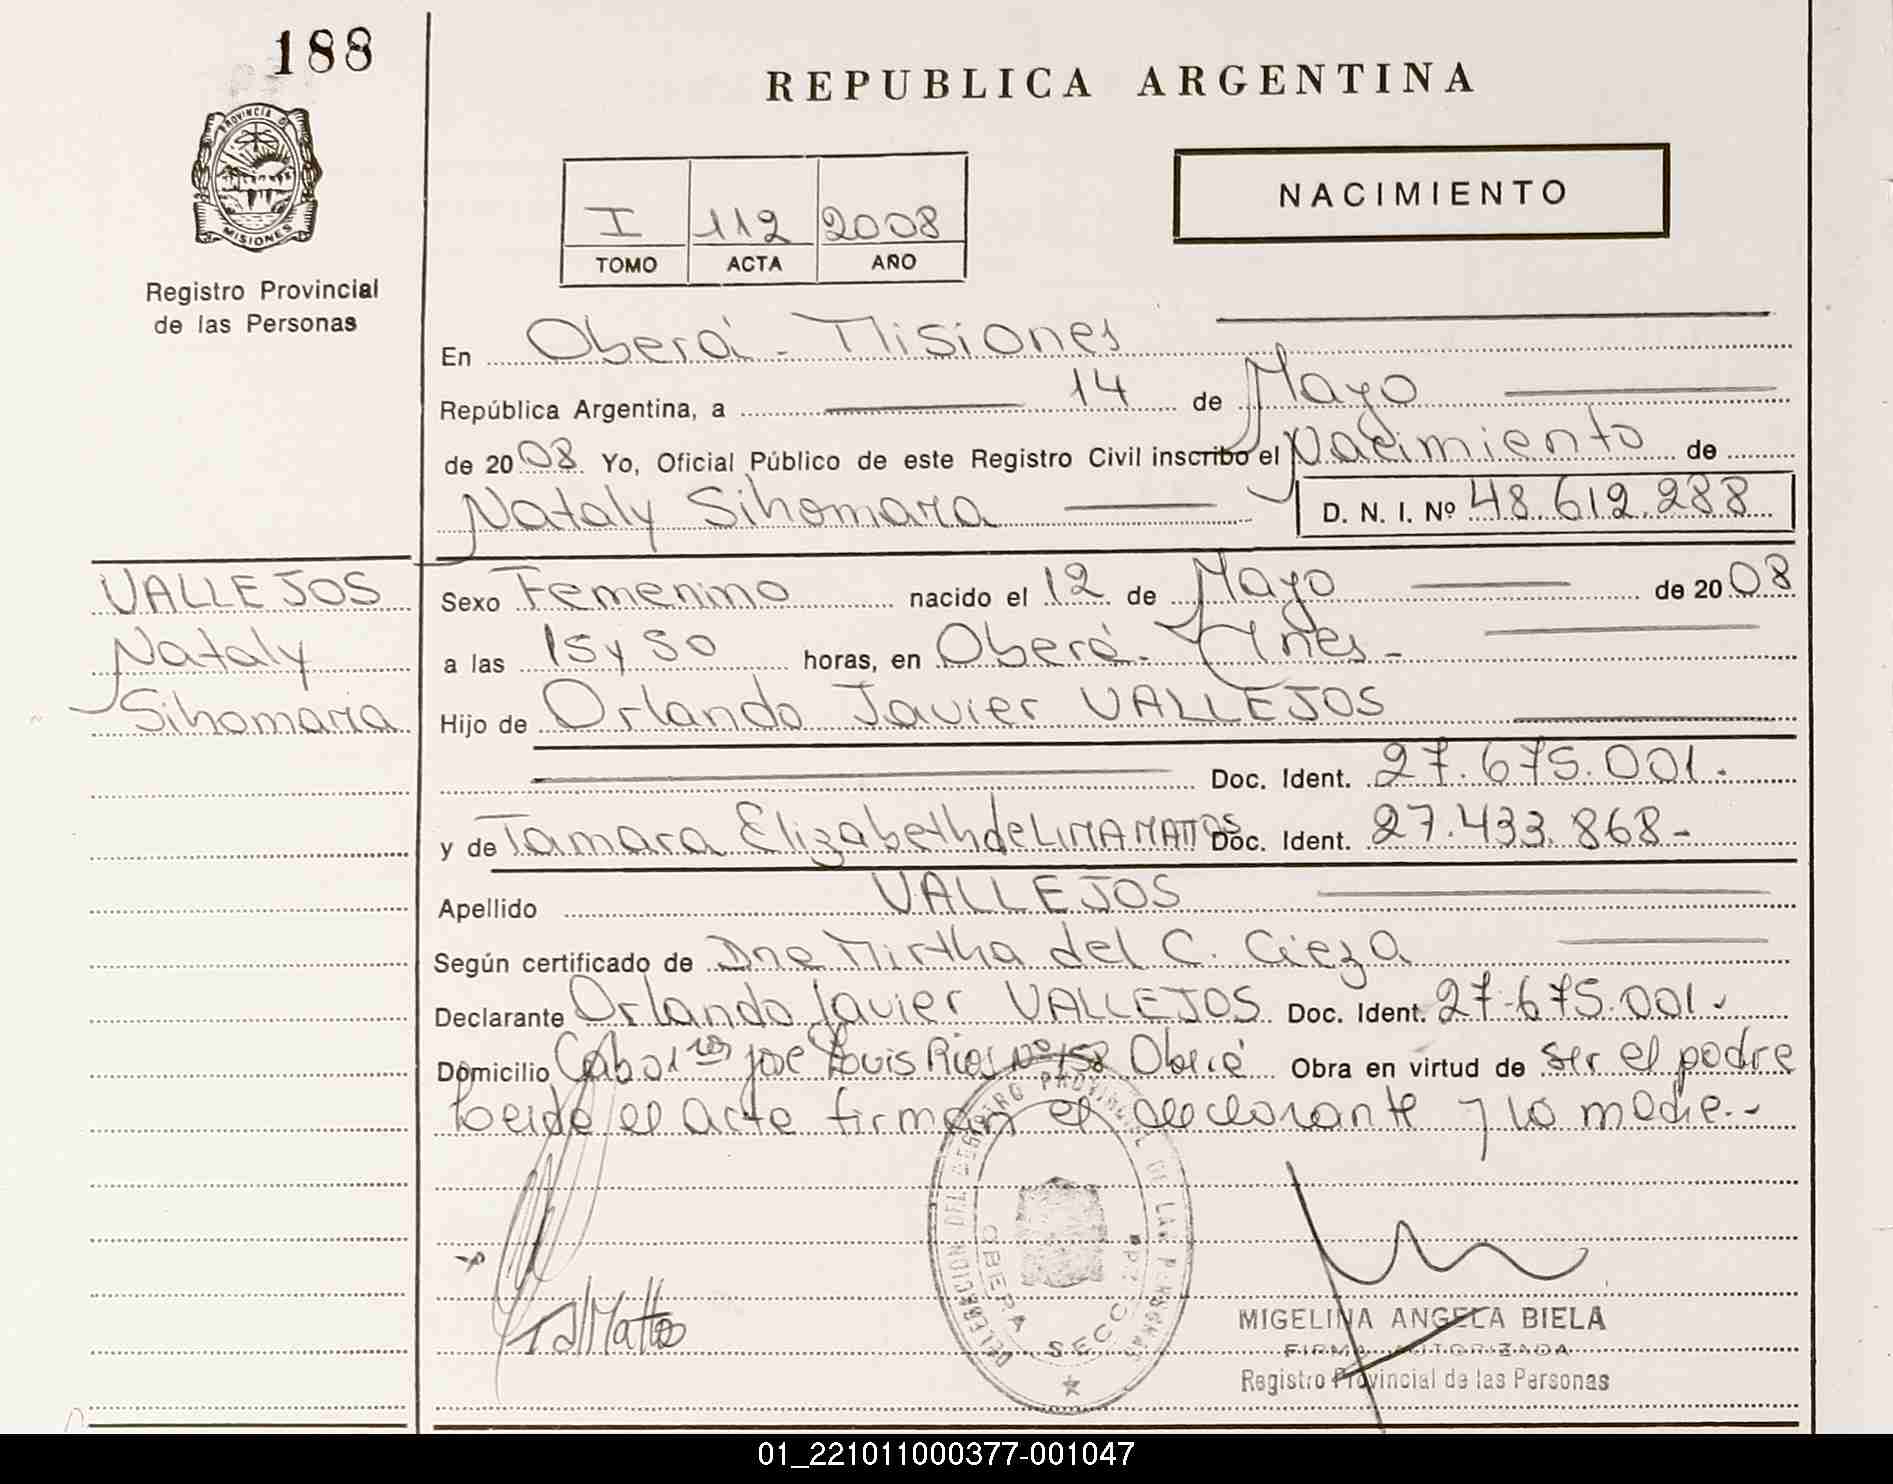 188
REPUBLICA ARGENTINA
PROVINCIA D
MISIONES
Registro Provincial
de las Personas
NACIMIENTO
I 112 2008
TOMO ACTA AÑO
En Oberá - Misiones
República Argentina, a 14 de Mayo
de 2008 Yo, Oficial Público de este Registro Civil inscribo el Nacimiento de
Nataly Sihomara D. N. I. Nº 48.612.288
VALLEJOS
Nataly
Sihomara
Sexo Femenino nacido el 12 de Mayo de 2008
a las 15 y 50 horas, en Oberá - Mnes -
Hijo de Orlando Javier VALLEJOS
Doc. Ident. 27.675.001.
y de Tamara Elizabeth de LIMA MATTOS Doc. Ident. 27.433.868-
Apellido VALLEJOS
Según certificado de Dra Mirtha del C. Cieza
Declarante Orlando Javier VALLEJOS Doc. Ident. 27.675.001.
Domicilio Cabo 1ro José Louis Rios Nº 158 Oberá Obra en virtud de ser el padre
Leida el acta firman el declarante y la madre.-
DELEGACION DEL REGISTRO PROVINCIAL DE LAS PERSONAS
OBERA SECC.
MIGELINA ANGELA BIELA
FIRMA AUTORIZADA
Registro Provincial de las Personas
01_221011000377-001047